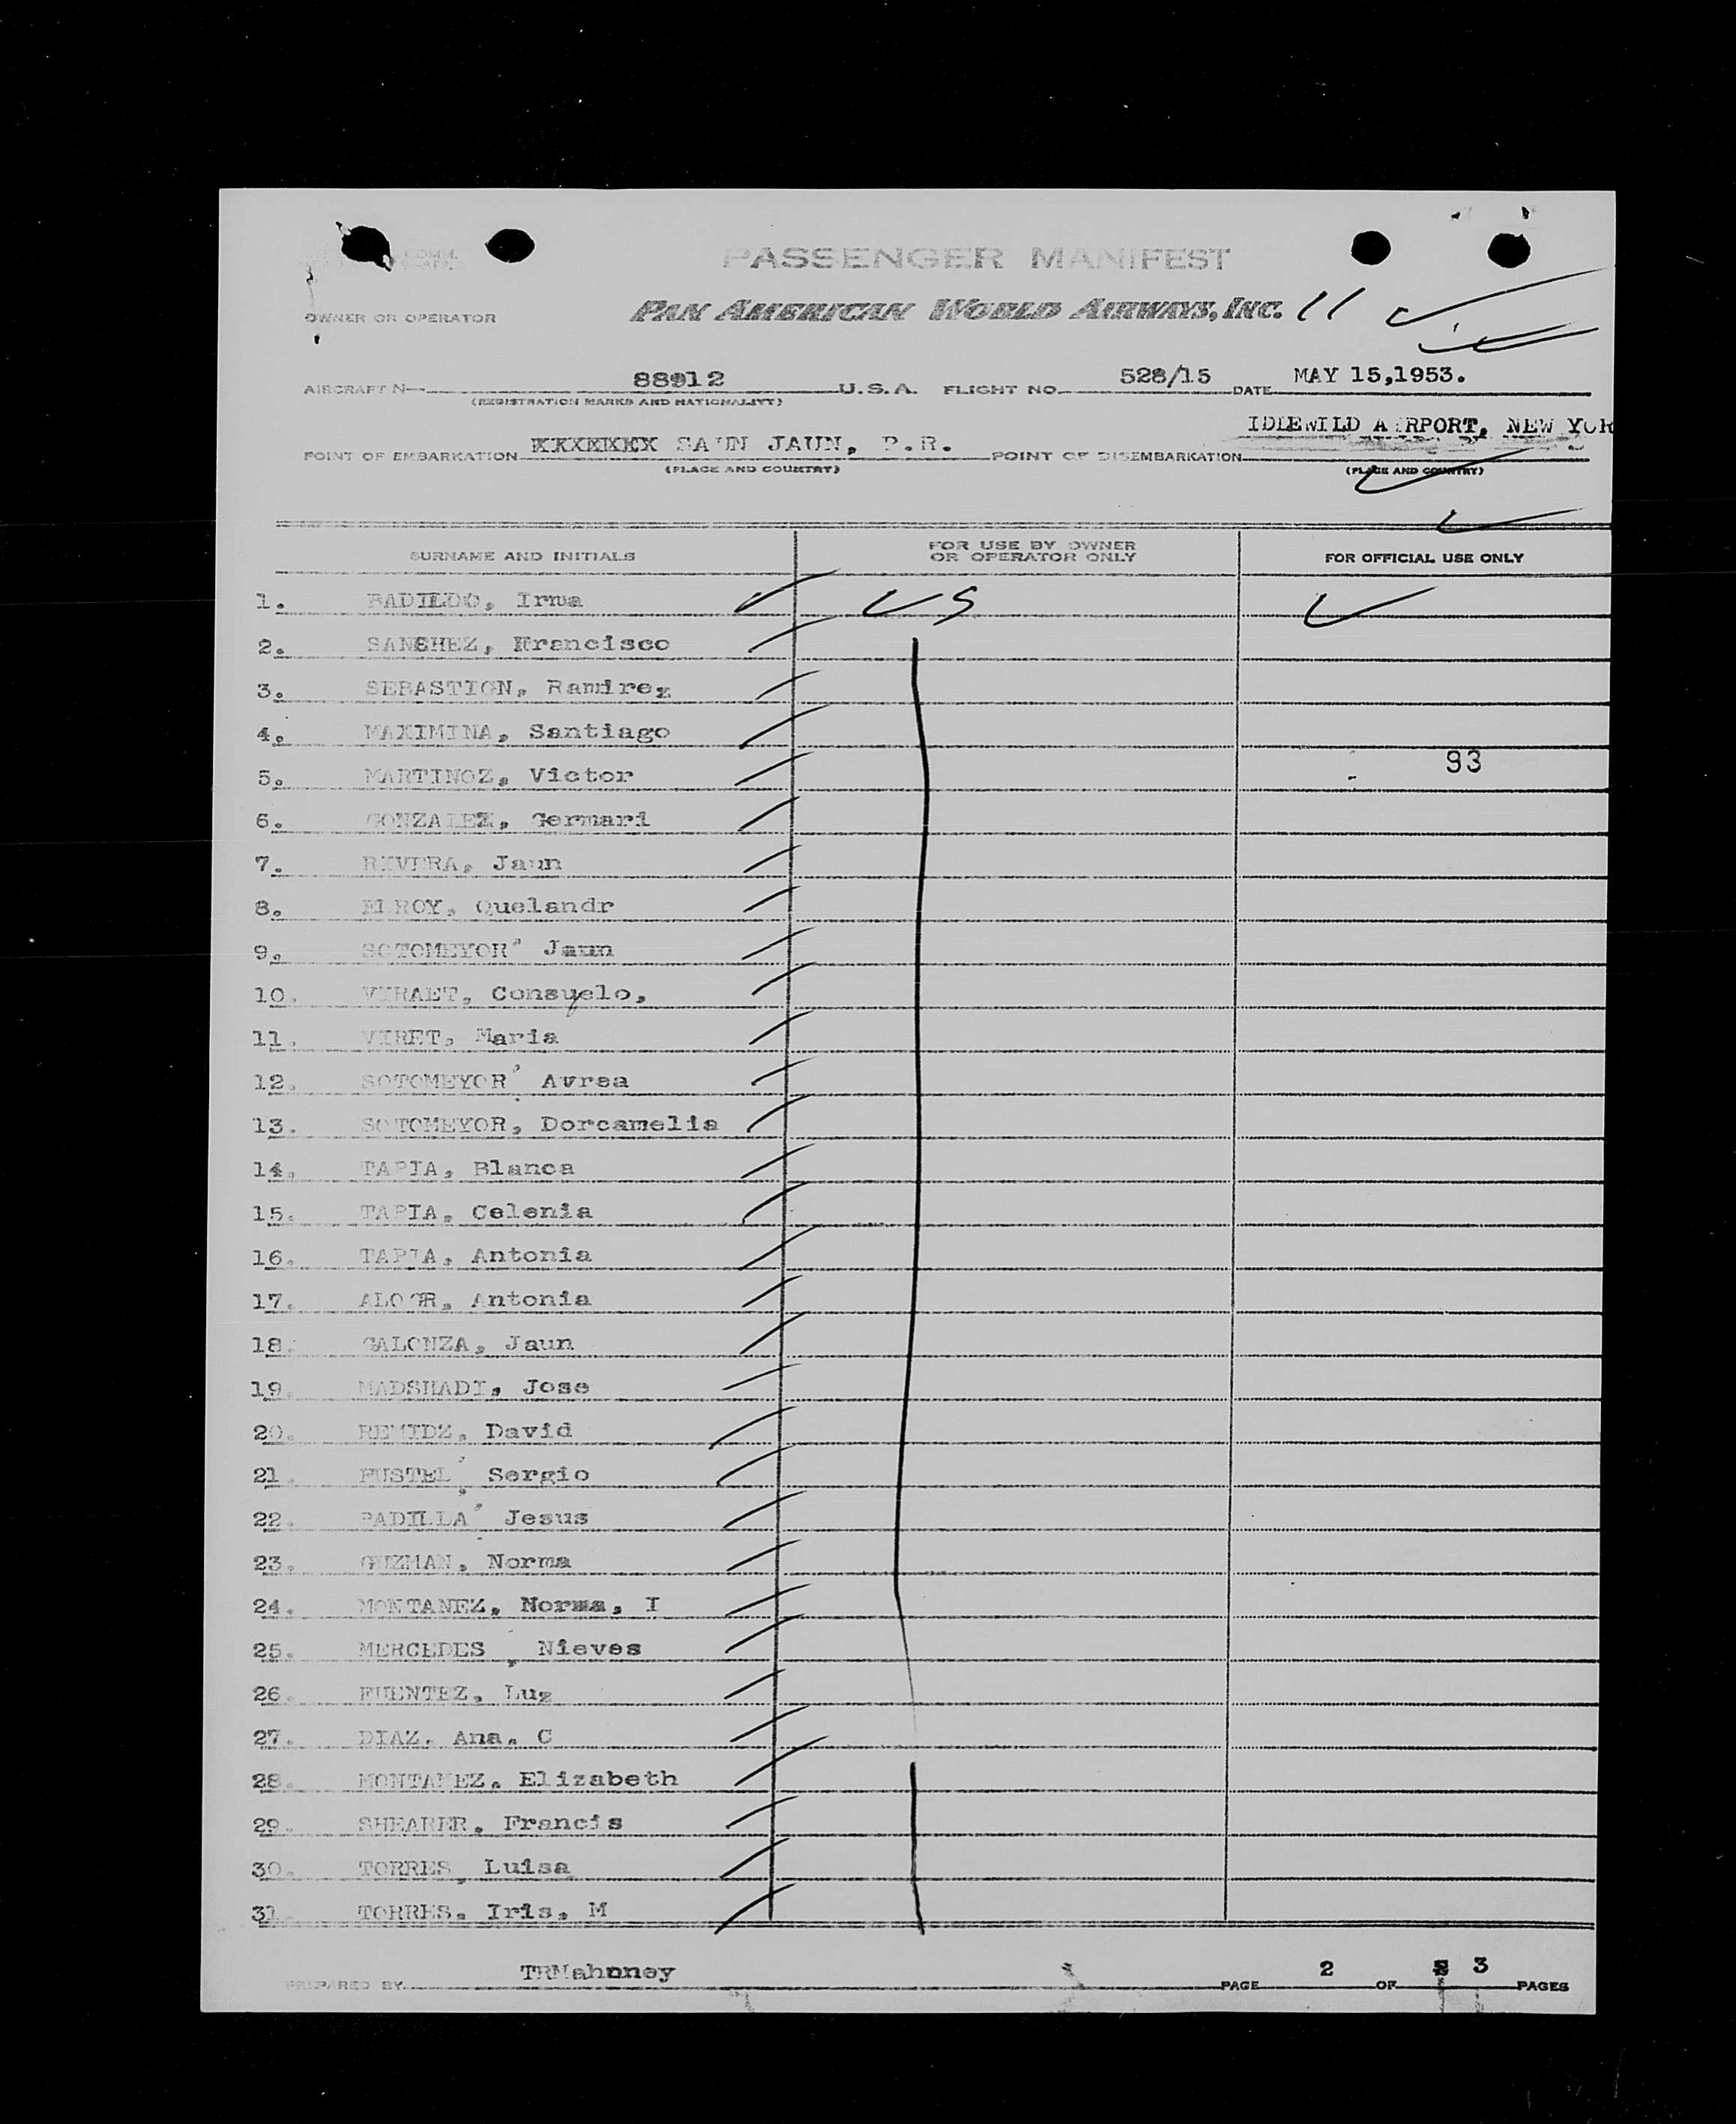 COMM.
PASSENGER MANIFEST
OWNER OR OPERATOR PAN AMERICAN WORLD AIRWAYS, INC. 11
AIRCRAFT N— 88912 U.S.A. FLIGHT NO. 528/15 DATE MAY 15,1953.
(REGISTRATION MARKS AND NATIONALITY)
IDLEWILD AIRPORT, NEW YOR
POINT OF EMBARKATION XXXXXXX SAUN JAUN, P.R. POINT OF DISEMBARKATION
(PLACE AND COUNTRY) (PLACE AND COUNTRY)
SURNAME AND INITIALS FOR USE BY OWNER OR OPERATOR ONLY FOR OFFICIAL USE ONLY
1. BADILDO, Irma US
2. SANCHEZ, Francisco
3. SEBASTION, Ramirez
4. MAXIMINA, Santiago
93
5. MARTINOZ, Victor
6. GONZALEZ, Germari
7. RIVERA, Jaun
8. ELROY, Quelandr
9. SOTOMEYOR, Jaun
10. VIRAET, Consuelo,
11. VIRET, Maria
12. SOTOMEYOR, Avrea
13. SOTOMEYOR, Dorcamelia
14. TAPIA, Blanca
15. TAPIA, Celenia
16. TAPIA, Antonia
17. Antonia
18. GALONZA, Jaun
19. MADSHADI, Jose
20. David
21. FUSTEL, Sergio
22. PADILLA, Jesus
23. GUZMAN, Norma
24. MONTANEZ, Norma, I
25. MERCEDES, Nieves
26. FUENTEZ, Luz
27. DIAZ, Ana, C
28. MONTANEZ, Elizabeth
29. SHEARER, Francis
30. TORRES, Luisa
31. TORRES, Iris, M
PREPARED BY TRMahnney PAGE 2 OF 3 PAGES